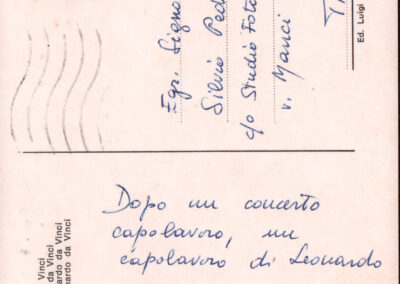 Dopo un concerto
capolavoro, un
capolavoro di Leonardo
Egr. Signo
Silvio Ped
c/o Studio Foto
v. Manci
Ed. Luigi
Vinci
da Vinci
ardo da Vinci
nardo da Vinci